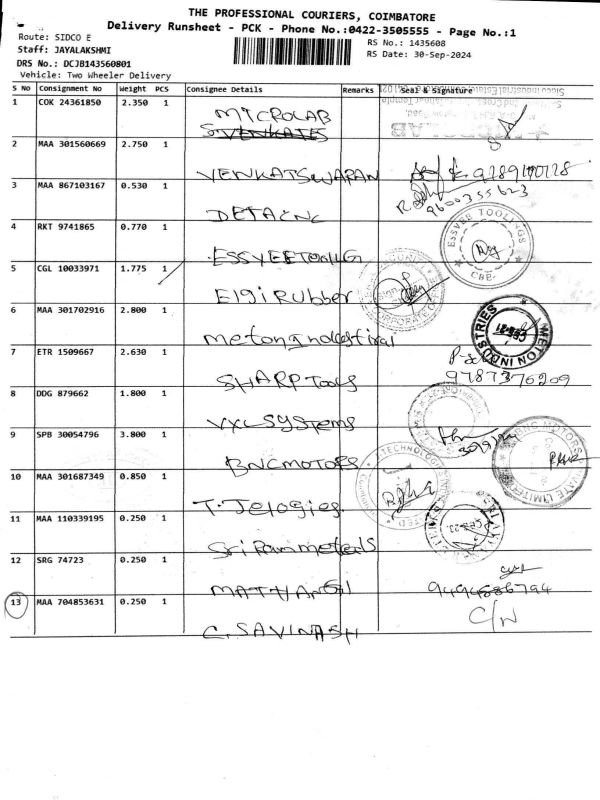 THE PROFESSIONAL COURIERS, COIMBATORE
Delivery Runsheet - PCK - Phone No.:0422-3505555 - Page No.:1
Route: SIDCO E
RS No.: 1435608
Staff: JAYALAKSHMI
RS Date: 30-Sep-2024
DRS No.: DCJB143560801
Vehicle: Two Wheeler Delivery
S No Consignment No Weight PCS Consignee Details Remarks Seal & Signature
1 COK 24361850 2.350 1 MICROLAB
S.VENKATES
2 MAA 301560669 2.750 1 VENKATSWARAN
3 MAA 867103167 0.530 1 DETAINC 9600355623
4 RKT 9741865 0.770 1 ESSVEETOOLLG ESSVEE TOOLINGS CBE
5 CGL 10033971 1.775 1 Elgi Rubber
6 MAA 301702916 2.800 1 metonindestiral METON INDUSTRIES
7 ETR 1509667 2.630 1 SHARP Tools 9787376209
8 DDG 879662 1.800 1 VXL SYSTEMS
9 SPB 30054796 3.800 1 BNCMOTORS
10 MAA 301687349 0.850 1 T.Jelogies
11 MAA 110339195 0.250 1 Sri Ram metals
12 SRG 74723 0.250 1 MATHANGI 9494886794
13 MAA 704853631 0.250 1 C.SAVINASH C/N